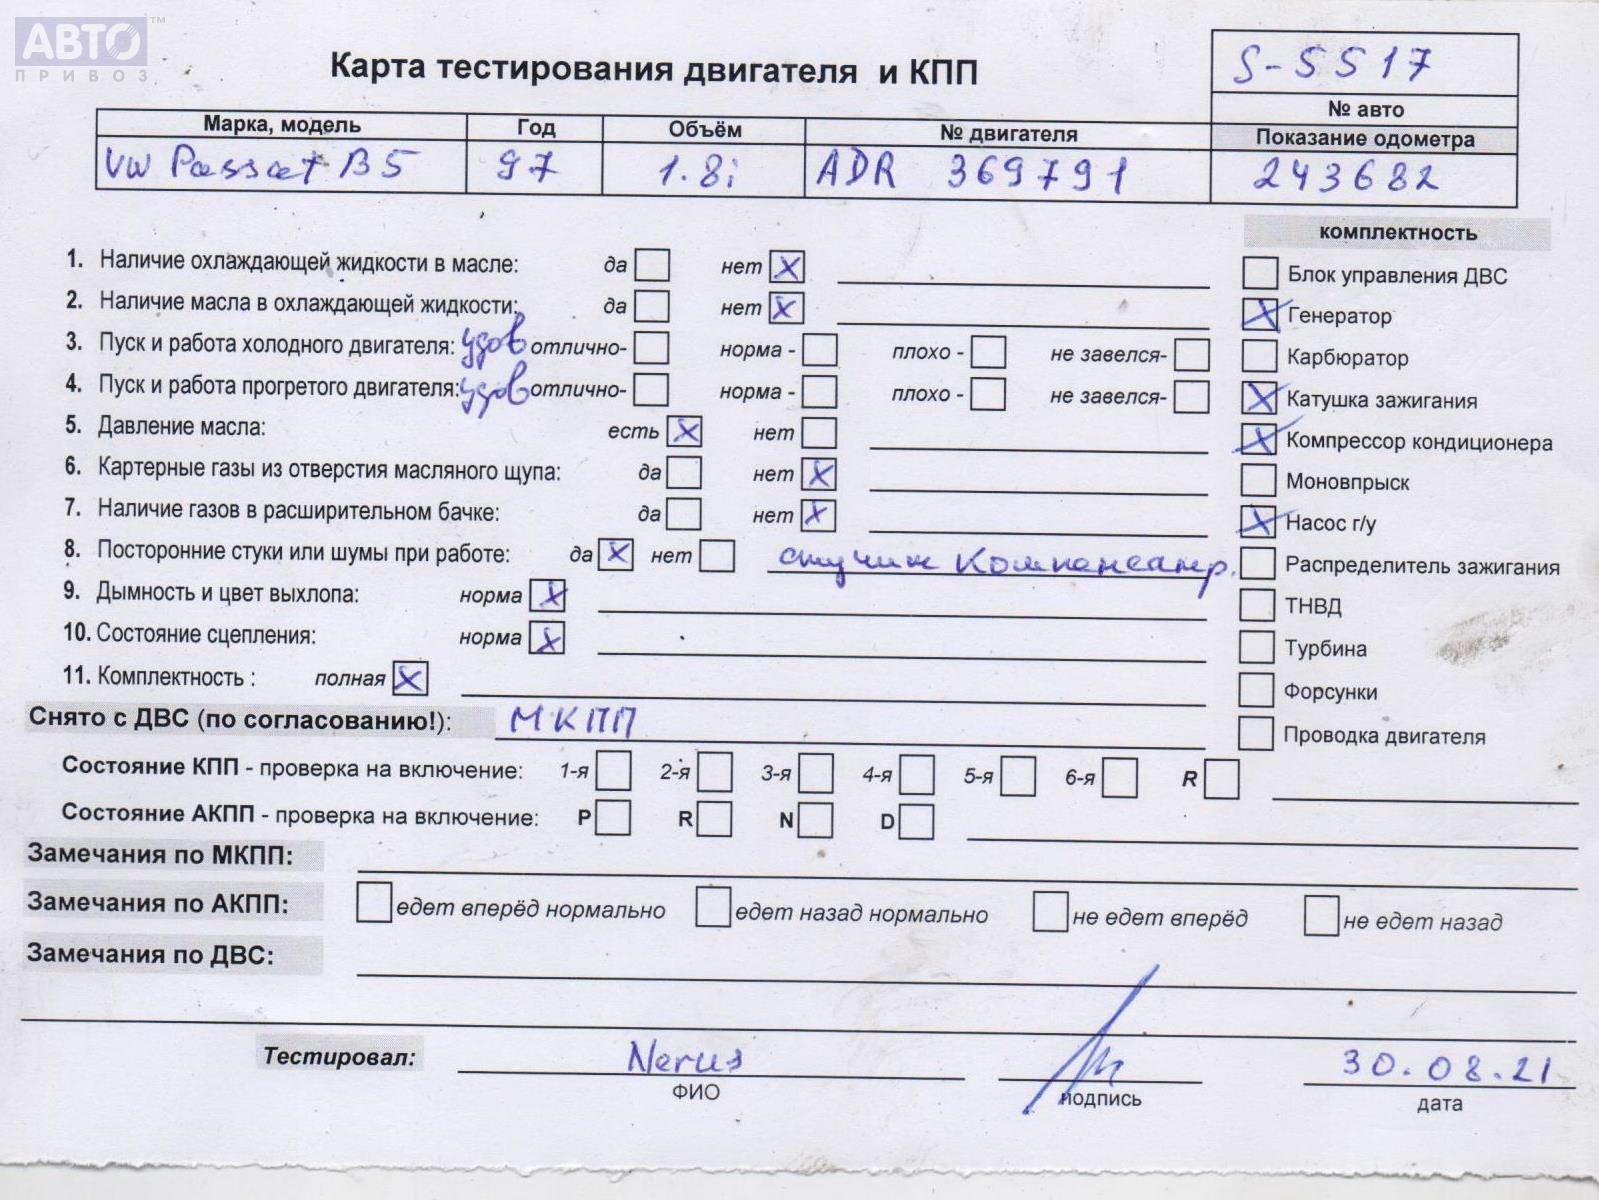 АВТО™
ПРИВОЗ
Карта тестирования двигателя и КПП
S-5517
№ авто
Марка, модель Год Объём № двигателя Показание одометра
VW Passat B5 97 1.8i ADR 369791 243682
комплектность
1. Наличие охлаждающей жидкости в масле: да нет X
Блок управления ДВС
2. Наличие масла в охлаждающей жидкости: да нет X
X Генератор
3. Пуск и работа холодного двигателя: удов отлично- норма - плохо - не завелся-
Карбюратор
4. Пуск и работа прогретого двигателя: удов отлично- норма - плохо - не завелся-
X Катушка зажигания
5. Давление масла: есть X нет
X Компрессор кондиционера
6. Картерные газы из отверстия масляного щупа: да нет X
Моновпрыск
7. Наличие газов в расширительном бачке: да нет X
X Насос г/у
8. Посторонние стуки или шумы при работе: да X нет стучит компенсатр.
Распределитель зажигания
9. Дымность и цвет выхлопа: норма X
ТНВД
10. Состояние сцепления: норма X
Турбина
11. Комплектность : полная X
Форсунки
Снято с ДВС (по согласованию!): МКПП
Проводка двигателя
Состояние КПП - проверка на включение: 1-я 2-я 3-я 4-я 5-я 6-я R
Состояние АКПП - проверка на включение: P R N D
Замечания по МКПП:
Замечания по АКПП: едет вперёд нормально едет назад нормально не едет вперёд не едет назад
Замечания по ДВС:
Тестировал: 30.08.21
ФИО подпись дата